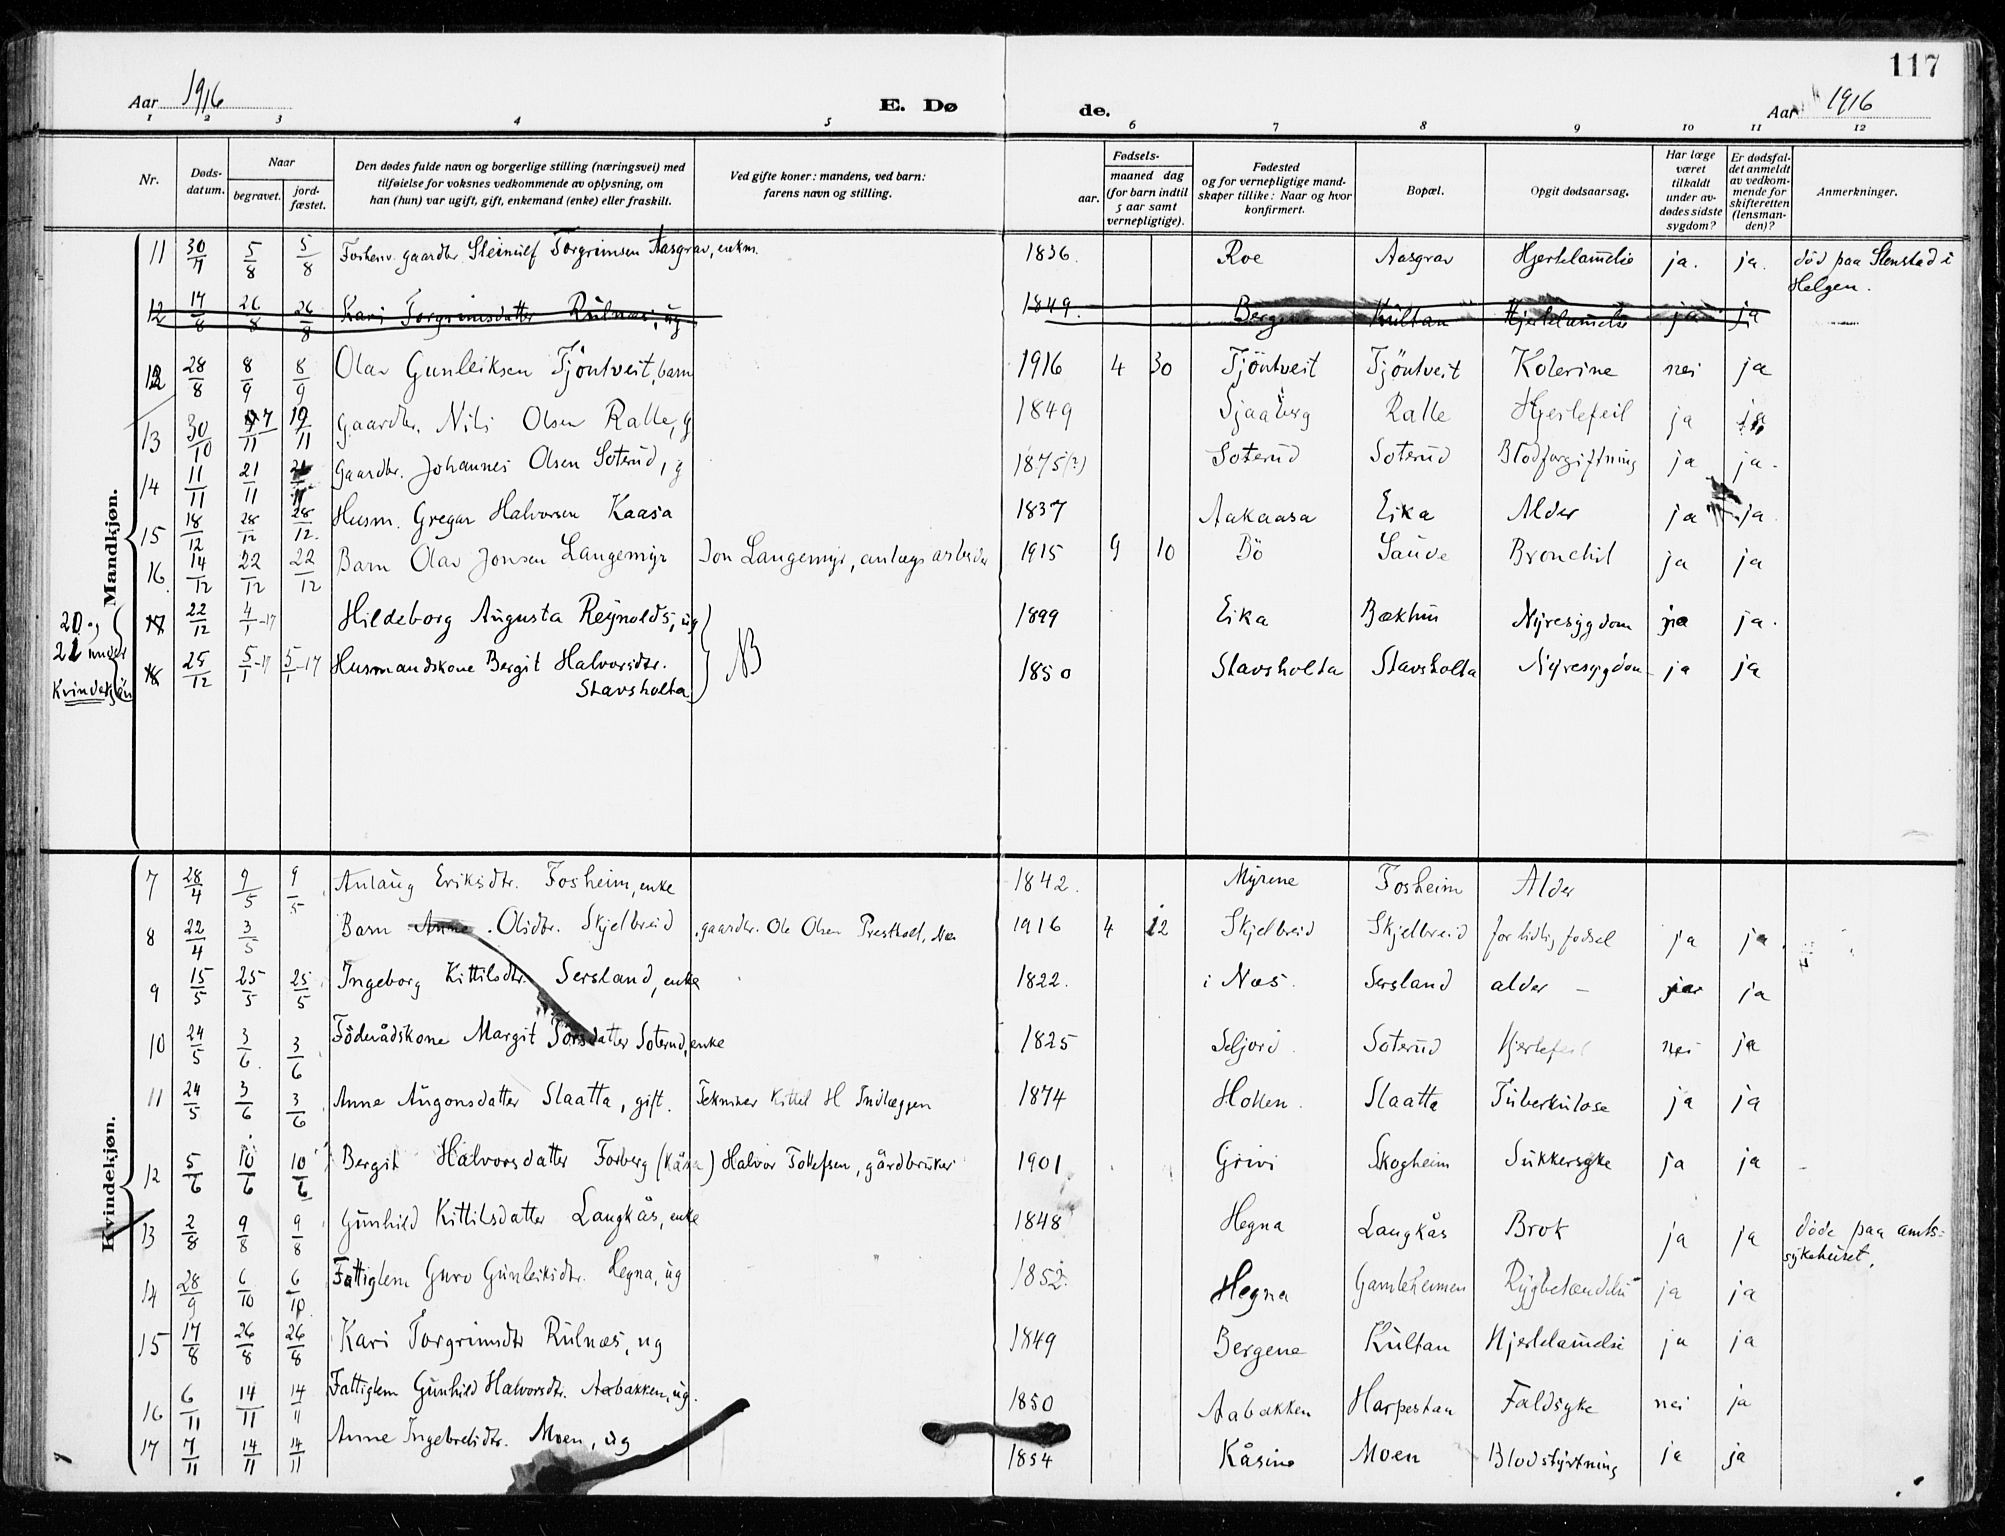 117
Aar 1916
E. Døde.
Aar 1916
1 2 3 4 5 6 7 8 9 10 11 12
Nr.
Døds-datum.
Naar
begravet.
jord-fæstet.
Den dødes fulde navn og borgerlige stilling (næringsvei) med
tilføielse for voksnes vedkommende av oplysning, om
han (hun) var ugift, gift, enkemand (enke) eller fraskilt.
Ved gifte koner: mandens, ved barn:
farens navn og stilling.
Fødsels-
aar.
maaned dag
(for barn indtil
5 aar samt
vernepligtige).
Fødested
og for vernepligtige mand-
skaper tillike: Naar og hvor
konfirmert.
Bopæl.
Opgit dødsaarsag.
Har læge
været
tilkaldt
under av-
dødes sidste
sygdom?
Er dødsfal-
det anmeldt
av vedkom-
mende for
skifteretten
(lensman-
den)?
Anmerkninger.
Mandkjøn.
11 5/8 5/8 gaardbr. Steinulf Torgrimsen Aasgrav, enkm. 1836. Roe Aasgrav Hjertelammelse ja. ja. død paa Stenstad i
Helgen.
12 17/8 26/8 26/8 Kari Torgrimsdatter Rulnæs, ug 1849. Bergene Kultan Hjertelammelse ja ja
12 28/8 8/9 8/9 Olav Gunleiksen Tjöntveit, barn 1916 4 30 Tjöntveit Tjöntveit Kolerine nei ja
13 30/10 17/11 Gaardbr. Nils Olsen Ralle, g 1849 Sjaaberg Ralle Hjertefeil ja ja
14 11/11 21/11 21/11 Gaardbr. Johannes Olsen Soterud, g 1875(?) Soterud Soterud Blodforgiftning ja ja.
15 18/12 28/12 28/12. Husm. Gregar Halvorsen Kaasa 1837 Aakaasa Eika Alder ja ja.
16. 14/12 22/12 22/12 Barn Olav Jonsen Langemyr Jon Langemyr, anlægsarbeider 1915 9 10 Bö Sauve Bronchit ja ja
17 22/12 4/1-17 Hildeborg Augusta Reynolds, ug 1899 Eika Bækhus Nyresygdom ja ja.
18 25/12 5/1-17 5/1-17 Husmandskone Bergit Halvorsdtr.
Stavsholta NB 1850 Stavsholta Stavsholta Nyresygdom ja ja
20 og
21 under
Kvindekjön
Kvindekjøn.
7 28/4 9/5 9/5 Anlaug Eriksdtr. Fosheim, enke 1842. Myrene Fosheim Alder
8 22/4 3/5 Barn Anne Olsdtr. Skjelbreid gaardbr. Ole Olsen Prestholt, Næs 1916 4 12 Skjelbreid Skjelbreid for tidlig födsel ja ja
9 15/5 25/5 25/5 Ingeborg Kittilsdtr. Sersland, enke 1822. i Næs. Sersland alder - ja ja
10 24/5 3/6. 3/6 Föderådskone Margit Torsdatter Soterud, enke 1825 Seljord Soterud Hjertefeil nei ja
11 24/5 3/6 3/6 Anne Augonsdatter Slaatta, gift. Tekniker Kittel H Indlæggen 1874 Holten. Slaatta Tuberkulose ja ja
12 5/6 10/6 10/6 Bergit Halvorsdatter Forberg (Kåsa) Halvor Tollefsen, gårdbruker 1901 Grivi Skogheim Sukkersyke ja ja
13 2/8 9/8 9/8 Gunhild Kittilsdatter Langkås, enke 1848 Hegna Langkås Brok ja ja döde paa amts-
sykehuset.
14 28/9 6/10 6/10 Fattiglem Guro Gunleiksdtr. Hegna, ug 1852. Hegna Gamleheimen ja ja
15 17/8 26/8 26/8 Kari Torgrimsdtr Rulnæs, ug 1849 Bergene Kultan Hjertelammelse ja ja
16 6/11 14/11 14/11 Fattiglem Gunhild Halvorsdtr. Aabakken, ug. 1850 Aabakken Harpestan Faldsyke nei ja
17 7/11 14/11 14/11 Anne Ingebretsdtr. Moen, ug 1854 Kåsine Moen Blodstyrtning ja ja